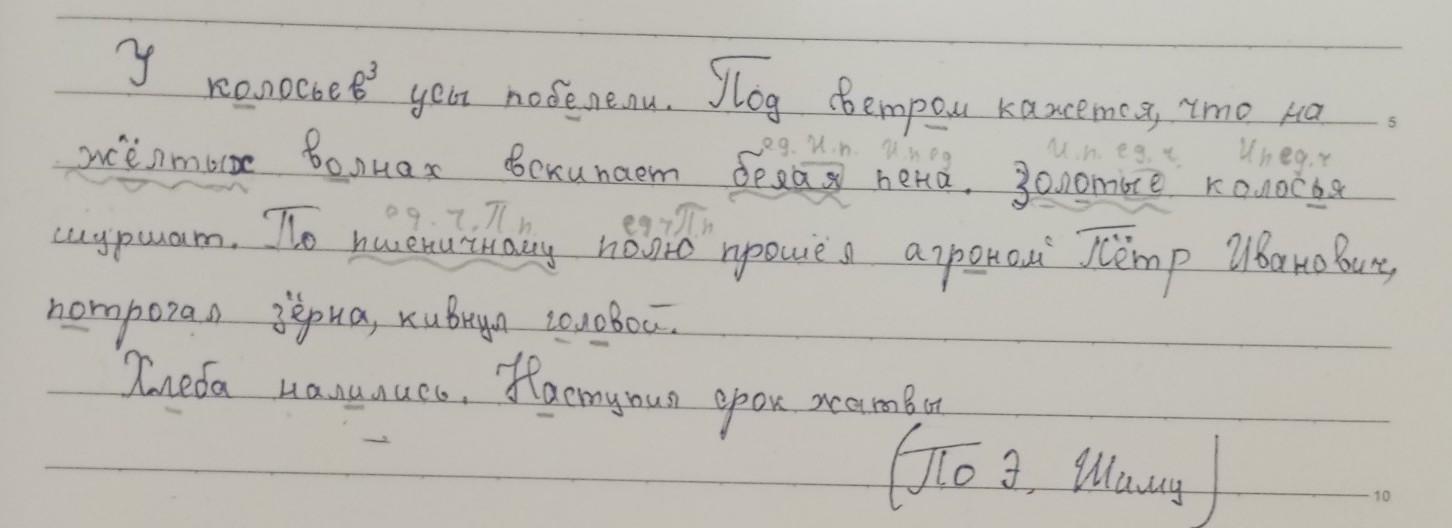 У колосьев³ усы побелели. Под ветром кажется, что на 5
ед. И.п. И.п ед И.п. ед. ч. Ип ед. ч
жёлтых волнах вскипает белая пена. Золотые колосья
ед. ч. П п. ед ч П п
шуршат. По пшеничному полю прошёл агроном Пётр Иванович,
потрогал зёрна, кивнул головой.
Хлеба налились. Наступил срок жатвы
(По Э. Шиму) 10